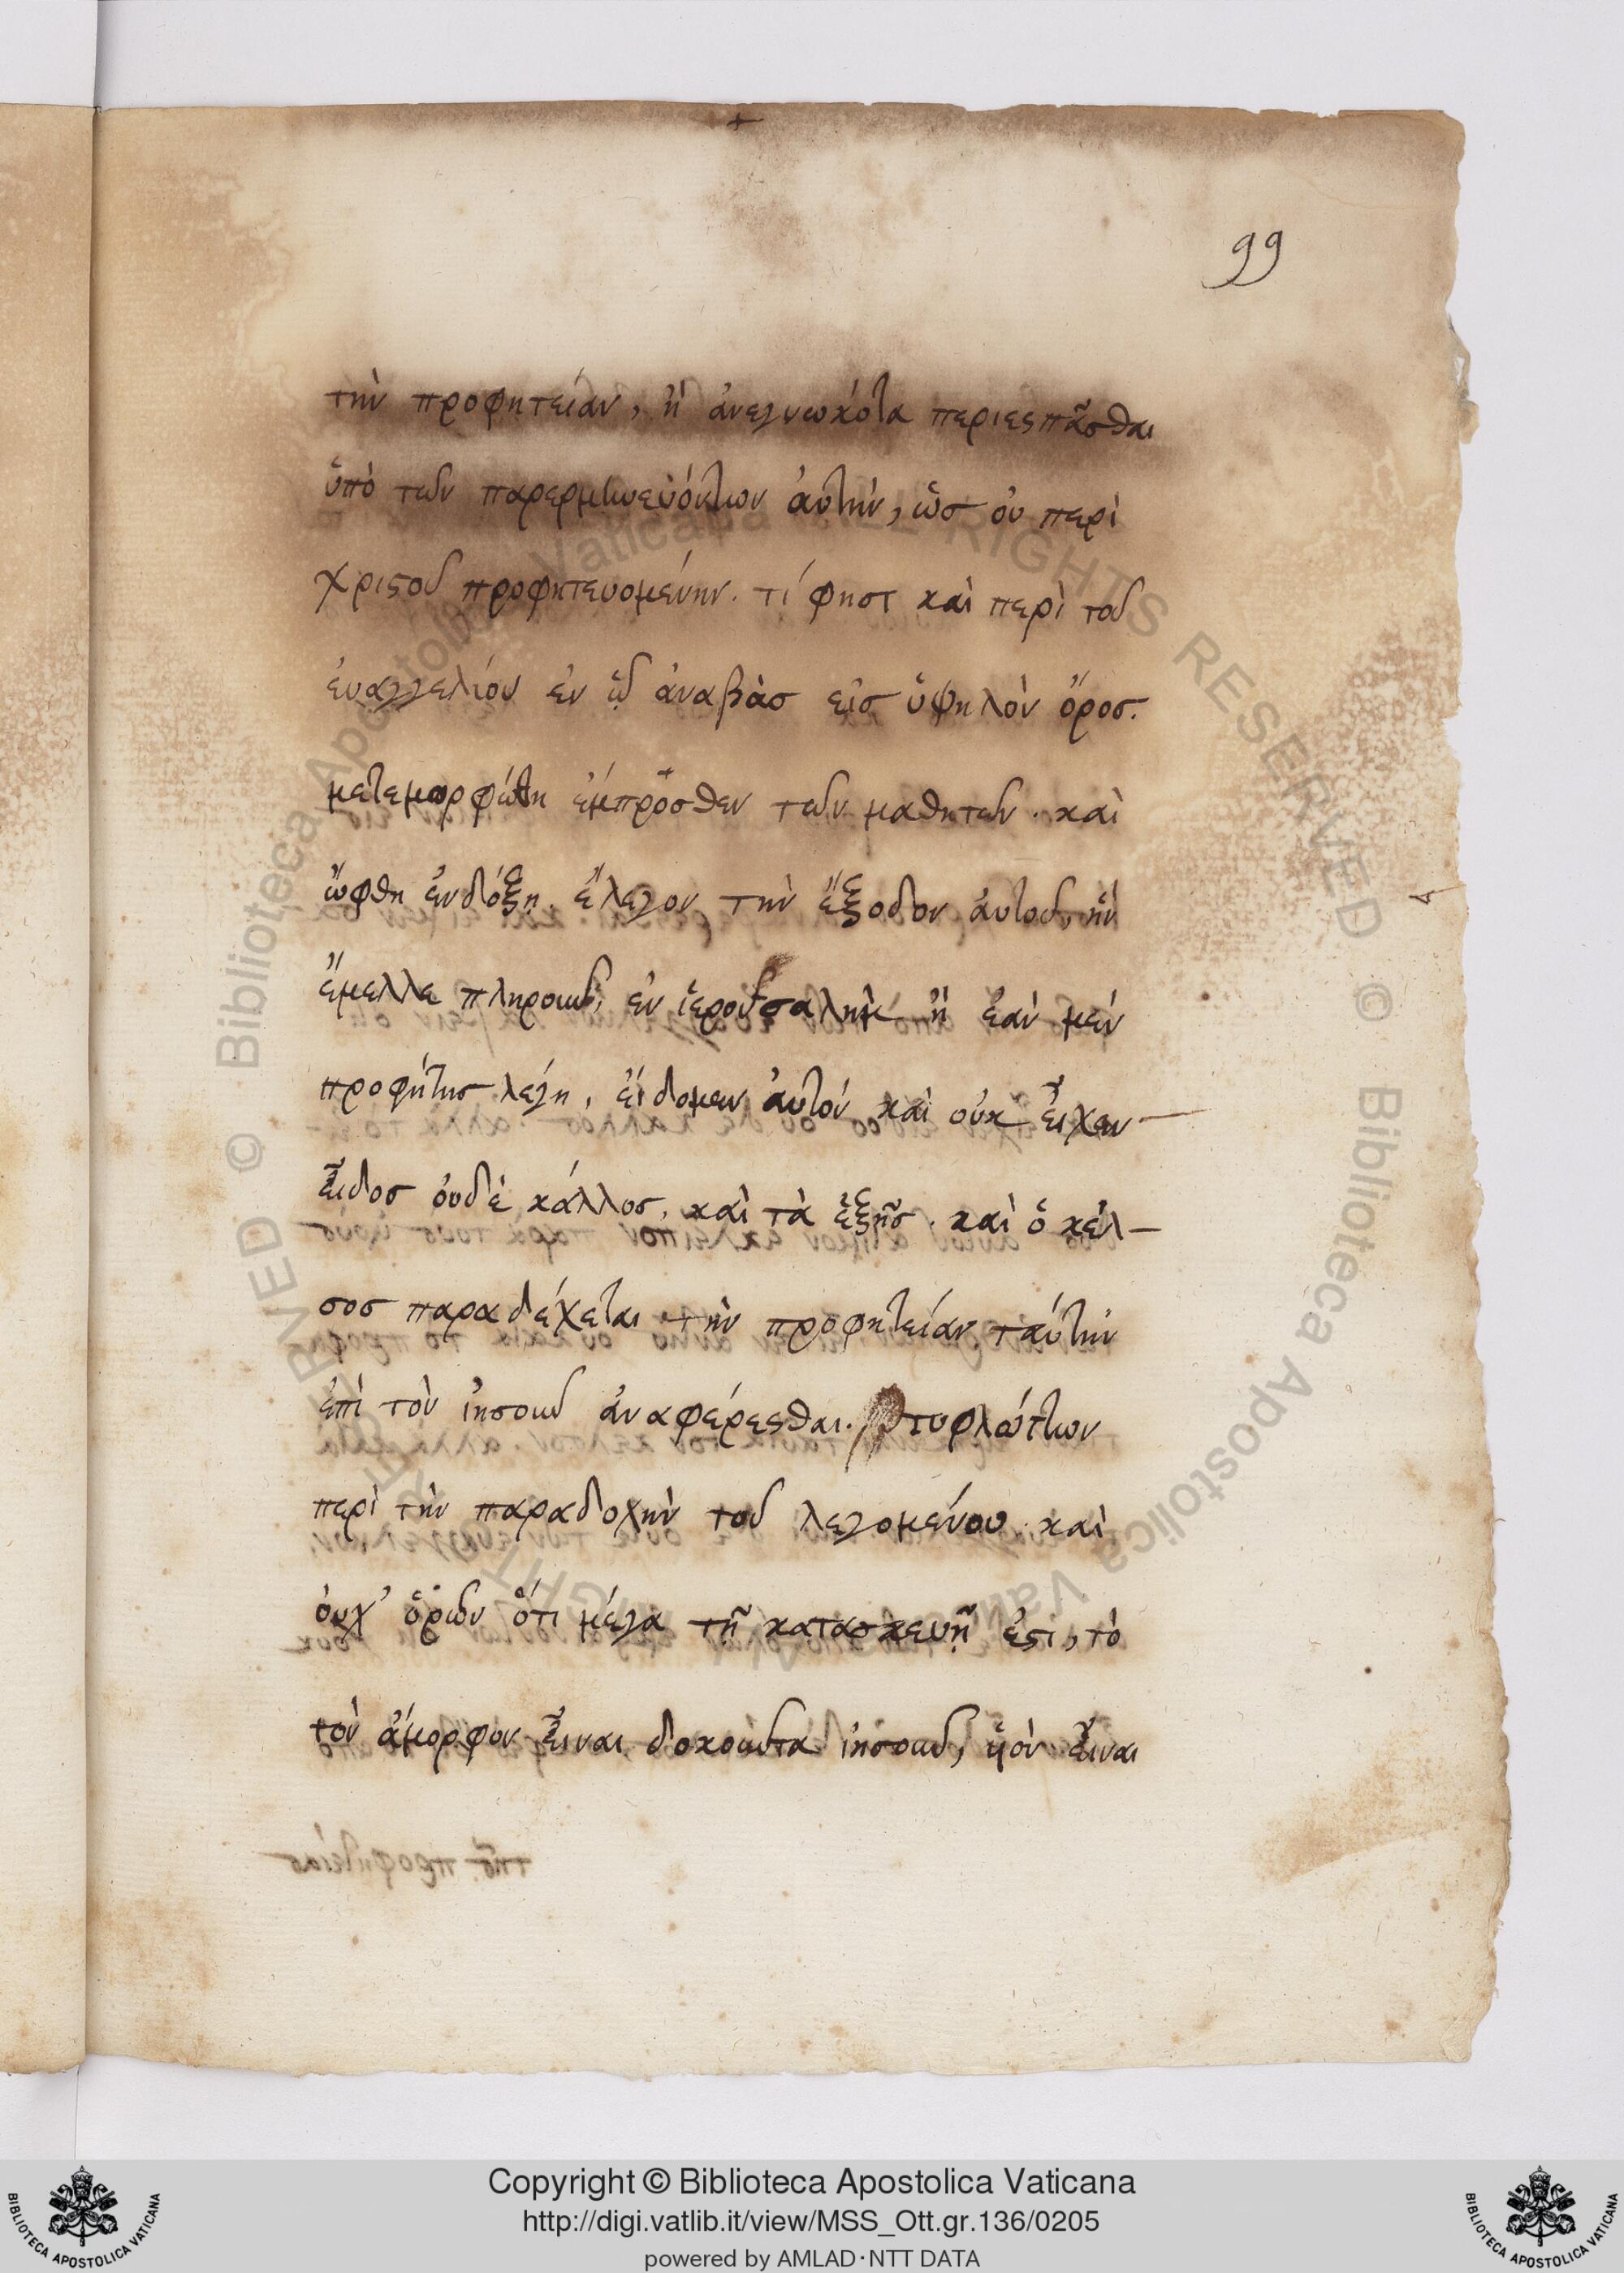 99
τὴν προφητείαν, ἢ ἀνεγνωκότα περιεσπᾶσθαι
ὑπὸ τῶν παρερμηνευόντων ἀυτὴν, ὡς ὀυ περὶ
χριστοῦ προφητευομένην. τί φησι καὶ περὶ τοῦ
ἐυαγγελίου ἐν ᾧ ἀναβὰσ εἰσ ὑψηλὸν ὄροσ.
μετεμορφώθη ἐμπρόσθεν τῶν μαθητῶν. καὶ
ὤφθη ἐν δόξη. ἔλεγον τὴν ἔξοδον ἀυτοῦ, ἣν
ἔμελλε πληροῦν, ἐν ἱερουσαλήμ ἢ ἐὰν μὲν
προφήτησ λέγη, εἴδομεν ἀυτόν καὶ οὐκ εἶχεν
εἶδοσ ὀυδὲ κάλλοσ. καὶ τὰ ἑξῆσ. καὶ ὁ κέλ-
σοσ παραδέχεται τὴν προφητείαν ταύτην
ἐπὶ τὸν ἰησοῦν ἀναφέρεσθαι. τυφλώττων
περὶ τὴν παραδοχὴν τοῦ λεγομένου. καὶ
ὀυχ' ὁρῶν ὅτι μέγα τῆ κατασκευῆ ἐστι, τὸ
τὸν ἄμορφον εἶναι δοκοῦντα ἰησοῦν, ὑὸν εἶναι
Copyright © Biblioteca Apostolica Vaticana
http://digi.vatlib.it/view/MSS_Ott.gr.136/0205
powered by AMLAD·NTT DATA